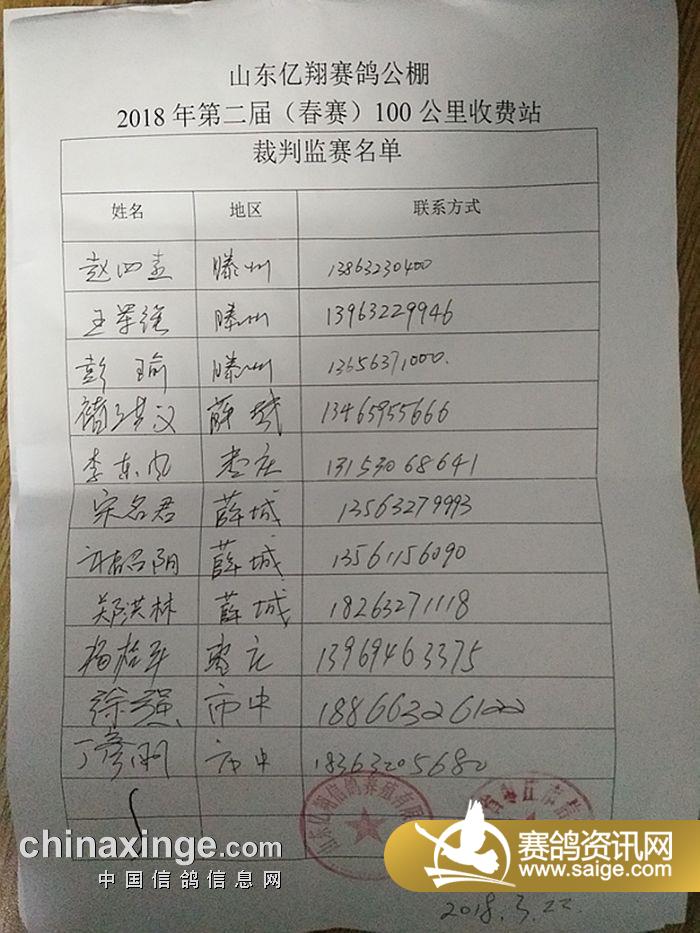 山东亿翔赛鸽公棚
2018 年第二届（春赛）100 公里收费站
裁判监赛名单
姓名 地区 联系方式
赵四孟 滕州 13863230400
王军强 滕州 13963229946
彭瑜 滕州 13656371000.
褚洪义 薛城 13465955666
李东风 枣庄 13153068641
宋名君 薛城 13563279993
许昭阳 薛城 13561156090
郑洪林 薛城 18263271118
杨桂平 枣庄 13969463375
徐强 市中 18866326122
丁彦刚 市中 18363205680
山东亿翔信鸽养殖有限
chinaxinge.com
中国信鸽信息网
赛鸽资讯网
www.saige.com
2018.3.22